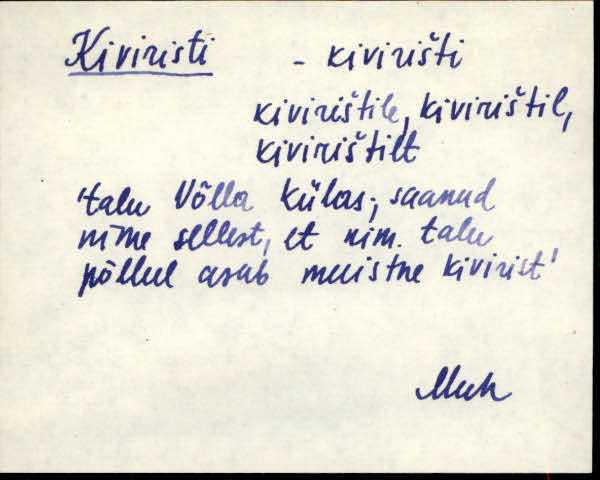 Kiviristi - kivirišti
kivirištile, kivirištil,
kivirištilt
'talu Võlla külas; saanud
nime sellest, et nim. talu
põllul asub muistne kivirist'
Muh